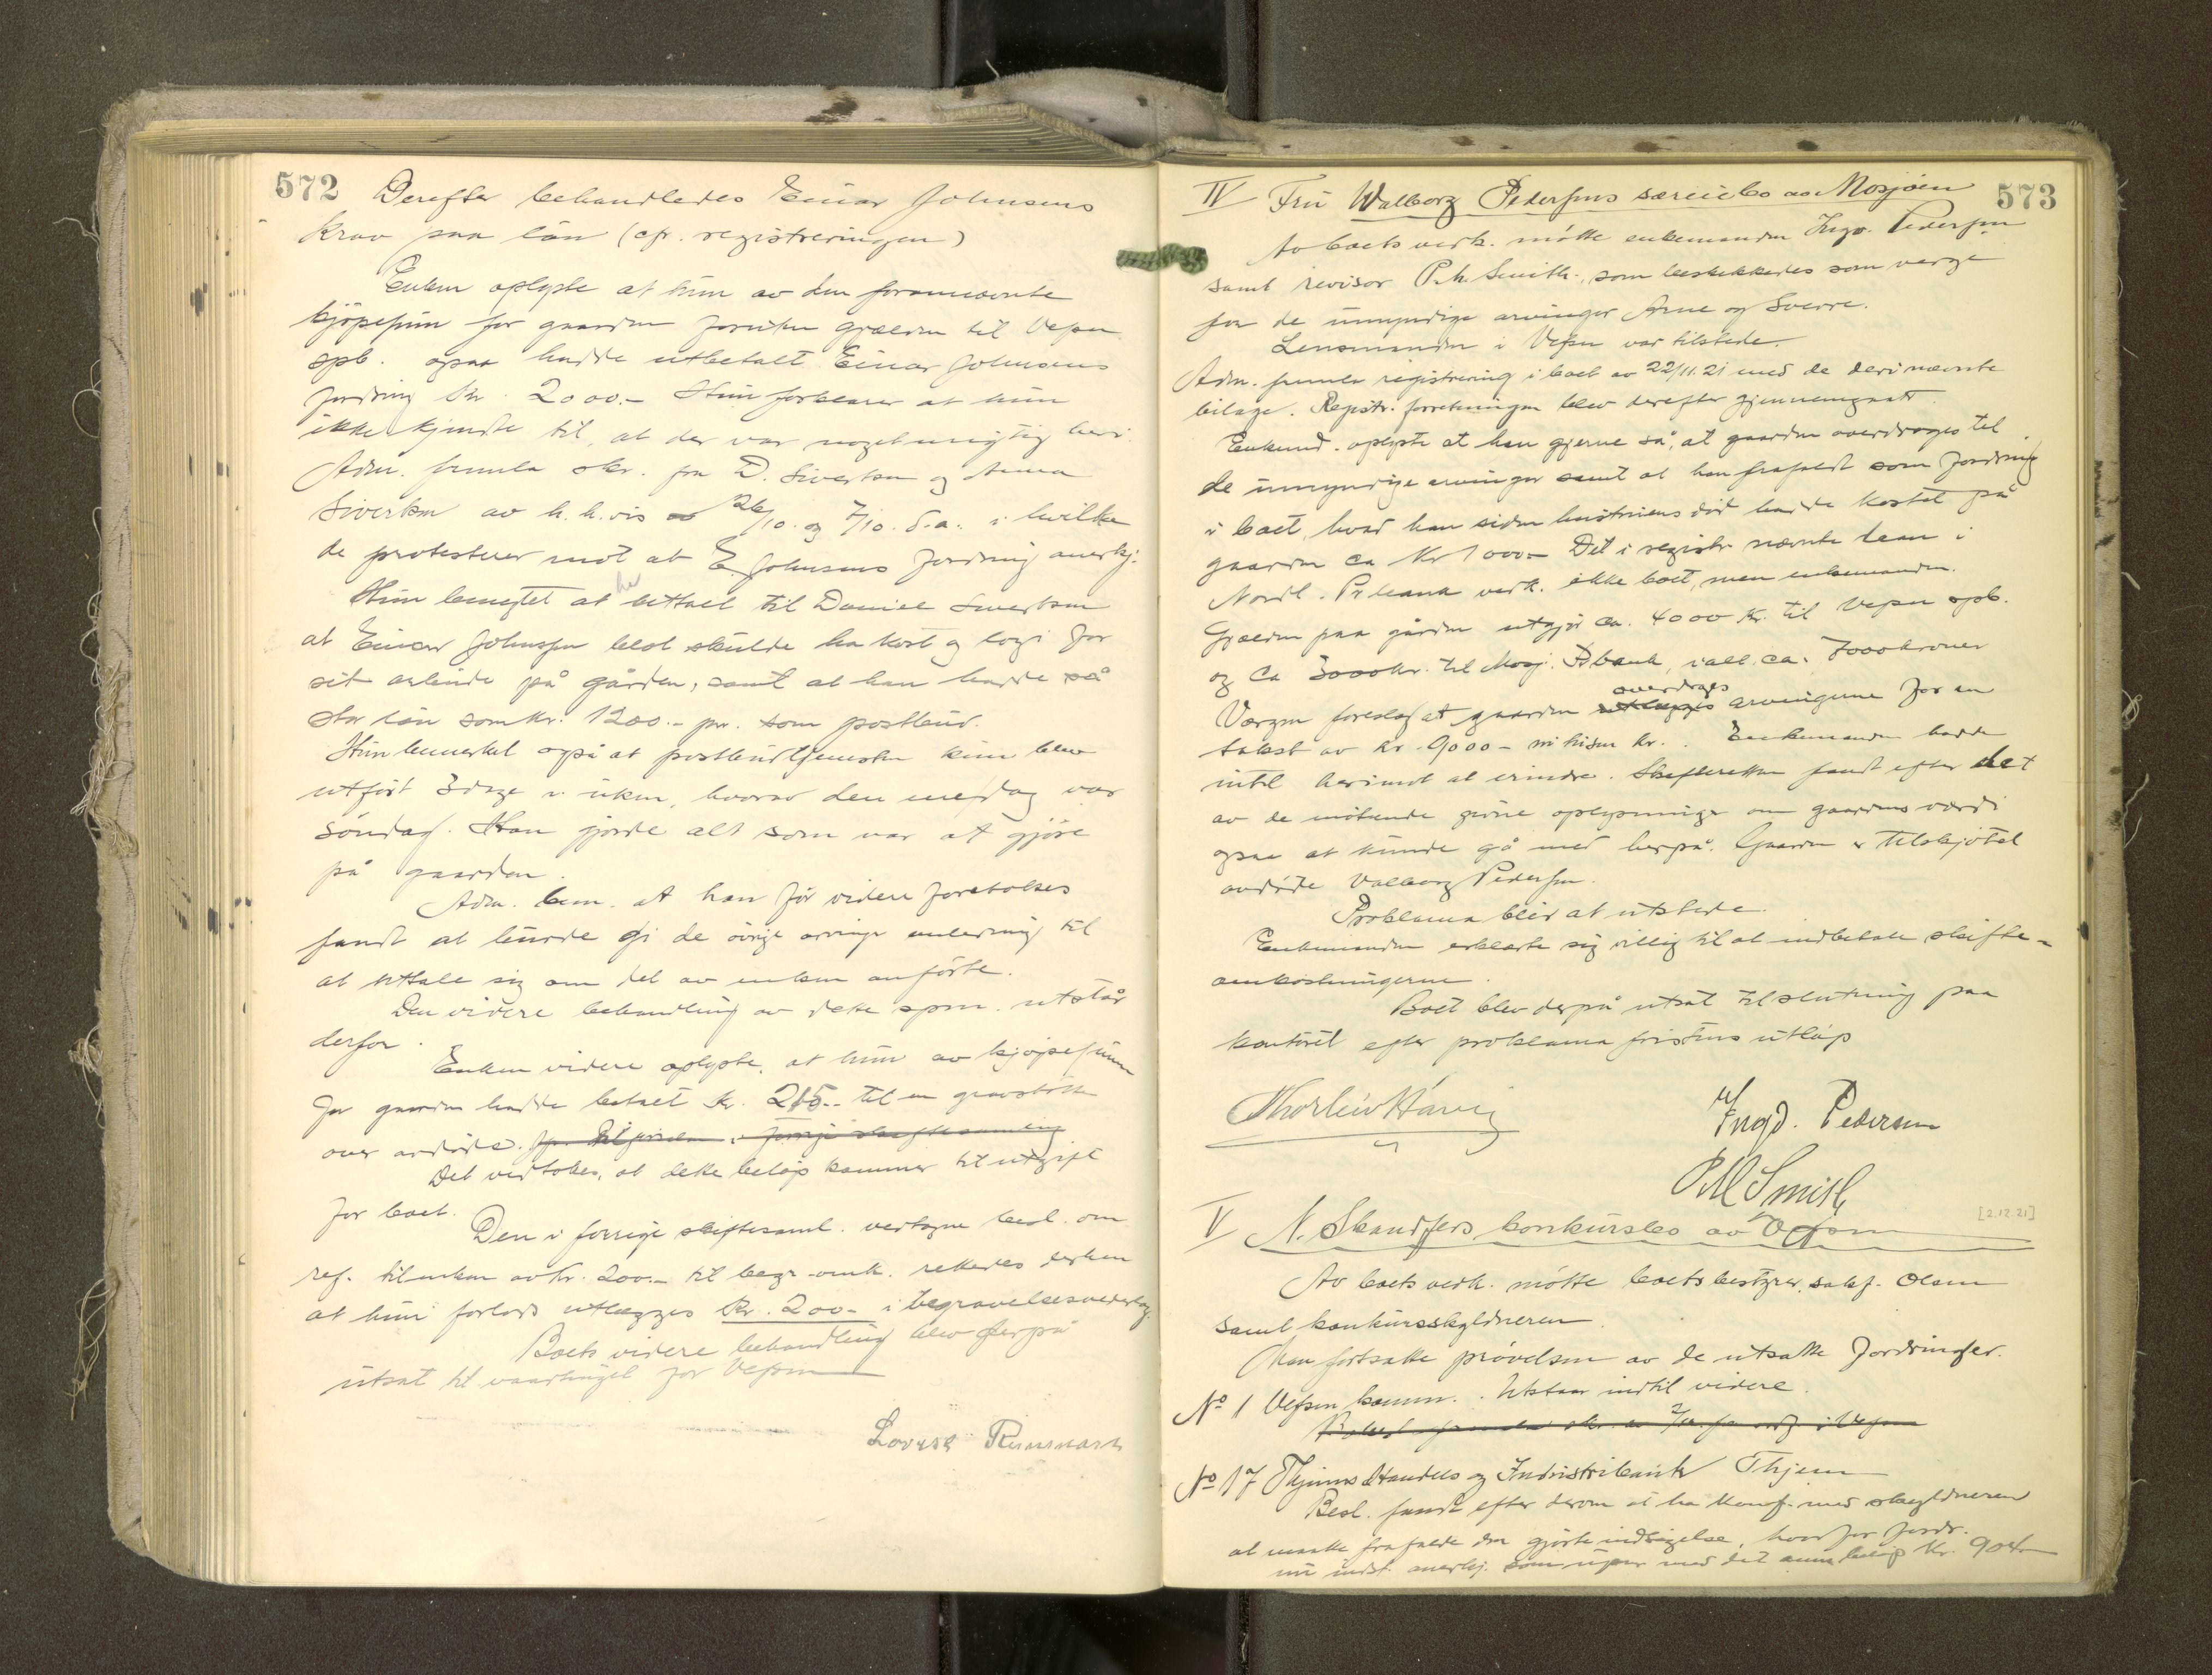 572
Derefter behandledes Einar Johnsens
krav paa lön (cfr. registreringen)
Enken oplyste at hun av den forannævnte
kjöpesum for gaarden foruten gjælden til Vefsn
spb. ogsaa hadde utbetalt Einar Johnsens
fordring kr. 2000.- Hun forklarer at hun
ikke kjendte til, at der var noget urigtig heri.
Adm. freml. skr. fra D. Sivertsen og Anna
Sivertsen av h.h.vis 26/10. og 7/10. d.a. i hvilke
de protesterer mot at E. Johnsens fordring anerkj.
Hun benegtet at ha uttalt til Daniel Sivertsen
at Einar Johnsen blot skulde ha kost og logi for
sit arbeide på gården, samt at han hadde så
stor lön som kr. 1200.- pr. som postbud.
Hun bemerket også at postbudtjenesten kun blev
utfört 3 dage i uken, hvorav den ene dag var
söndag. Han gjorde alt som var at gjöre
på gaarden.
Adm. bem. at han för videre foretokes
fandt at burde gi de övrige arvinger anledning til
at uttale sig om det av enken anförte.
Den videre behandling av dette spm. utstår
derfor.
Enken videre oplyste, at hun av kjöpesum
for gaarden hadde betalt kr. 215.- til en gravstötte
over avdöde. forrige skiftesamling
Det vedtokes, at dette belöp kommer til utgift
for boet.
Den i forrige skiftesaml. vedtagne besl. om
ref. til enken av kr. 200.- til begr. omk. rettedes derhen
at hun forlods utlægges kr. 200- i begravelsesvederlag.
Boets videre behandling blev derpå
utsat til vaartinget for Vefsn
Lovise
573
IV Fru Walborg Pedersens særeiebo av Mosjöen
Av boets vedk. mötte enkemanden Ingv. Pedersen
samt revisor P.M. Smith, som beskikkedes som verge
for de umyndige arvinger Arne og Sverre.
Lensmanden i Vefsn var tilstede.
Adm. fremla registrering i boet av 22/11.21 med de deri nævnte
bilage. Registr. forretningen blev derefter gjennemgaat.
Enkemd. oplyste at han gjerne så, at gaarden overdroges til
de umyndige arvinger samt at han frafaldt som fordring
i boet, hvad han siden hustruens död hadde kostet på
gaarden ca kr 1000.- Det i registr. nævnte laan i
Nordl. Pr.bank vedk. ikke boet, men enkemanden.
Gjælden paa gården utgjör ca. 4000 kr. til Vefsn spb.
og ca 3000 kr. til Mosj. Pbank, i alt ca. 7000 kroner
Værgen foreslog at gaarden utlægges overdroges arvingerne for en
takst av kr. 9000 - ni tusen kr. . Enkemanden hadde
intet herimot at erindre. Skifteretten fandt efter det
av de mötende givne oplysninger om gaardens værdi
ogsaa at kunde gå med herpå. Gaarden er tilskjötet
avdöde Valborg Pedersen.
Proklama blir at utstede.
Enkemanden erklærte sig villig til at indbetale skifte-
omkostningerne.
Boet blev derpå utsat til slutning paa
kontoret efter proklama fristens utlöp
Ingv. Pedersen
P M Smith
V N. Skandfers konkursbo av Vefsn [2.12.21]
Av boets vedk. mötte boets bestyrer, sakf. Olsen
samt konkursskyldneren.
Man fortsatte prövelsen av de utsatte fordringer.
No 1 Vefsn komm. . Utstaar indtil videre.
No 17 Handels og Industribank
Best. fandt efter derom at ha konf. med skyldneren
at maatte frafalde den gjorte indsigelse, hvorfor fordr.
nu indst. anerkj. som uprior. med det anm. belöp kr. 904